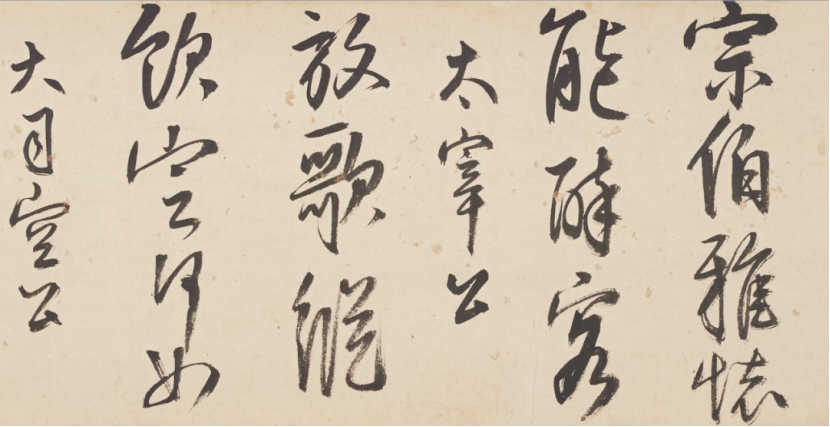 宗伯雅懷
能醉客
太宰公
放歌縱
飲定何如
大司空公